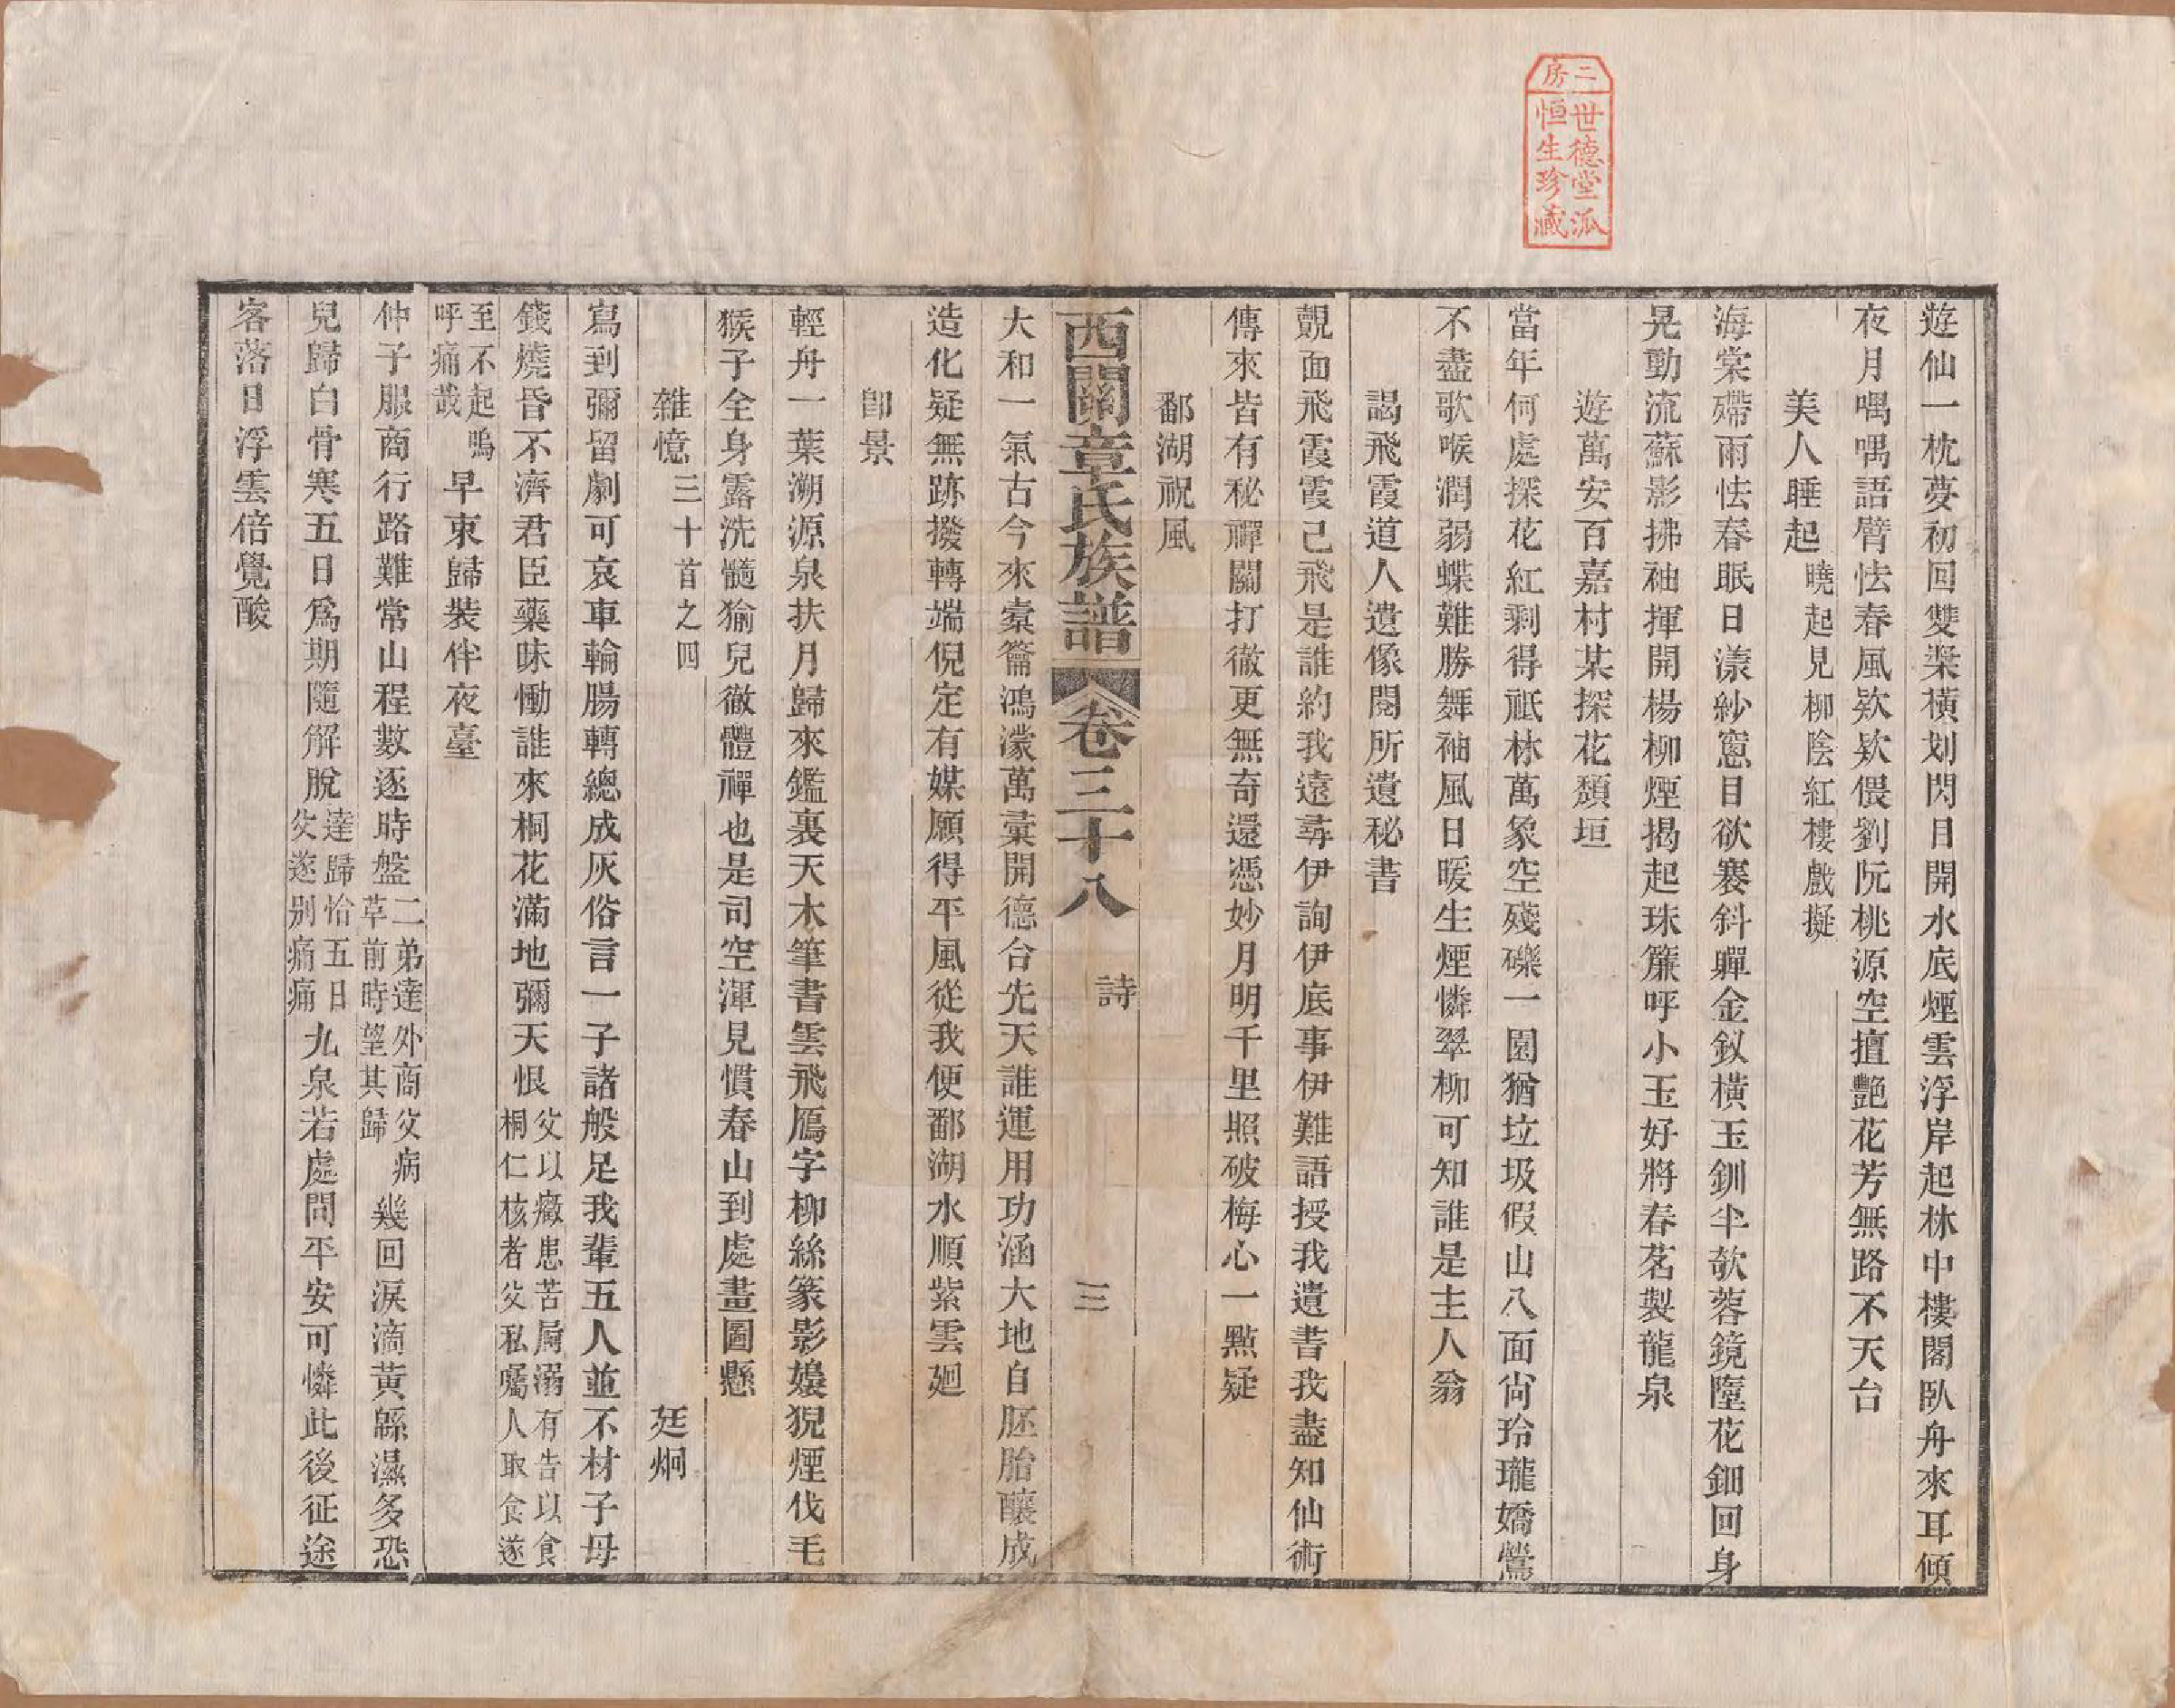 二房
世德堂派
恒生珍藏
遊仙一枕夢初回雙槳橫划閃日開水底煙雲浮岸起林中樓閣臥舟來耳傾
夜月喁喁語臂怯春風欵欵偎劉阮桃源空擅艷花芳無路不天台
美人睡起曉起見柳陰紅樓戲擬
海棠磹雨怯春眠日漾紗窻目欲褰斜軃金釵橫玉釧半欹蓉鏡墮花鈿回身
晃動流蘇影拂袖揮開楊柳煙揭起珠簾呼小玉好將春茗製龍泉
遊萬安百嘉村某探花頹垣
當年何處探花紅剩得祗林萬象空殘礫一園猶垃圾假山八面尙玲瓏嬌鶯
不盡歌喉潤弱蝶難勝舞袖風日暖生煙憐翠柳可知誰是主人翁
謁飛霞道人遺像閱所遺秘書
覿面飛霞霞己飛是誰約我遠尋伊詢伊底事伊難語授我遺書我盡知仙術
傳來皆有秘禪關打徹更無奇還憑妙月明千里照破梅心一點疑
鄱湖祝風
西關章氏族譜 卷三十八 詩 三
大和一氣古今來橐籥鴻濛萬彙開德合先天誰運用功涵大地自胚胎釀成
造化疑無跡撥轉端倪定有媒願得平風從我便鄱湖水順紫雲廻
卽景
輕舟一葉溯源泉扶月歸來鑑裏天木筆書雲飛鴈字柳絲篆影嫂猊煙伐毛
猴子全身露洗髓猶兒徹體禪也是司空渾見慣春山到處畫圖懸
雜憶三十首之四 廷炯
寫到彌留劇可哀車輪腸轉總成灰俗言一子諸般足我輩五人並不材子母
錢燒昏不濟君臣藥昧慟誰來桐花滿地彌天恨父以癥患苦屙溺有告以食桐仁核者父私囑人取食遂
至不起嗚呼痛哉早束歸裝伴夜臺
仲子服商行路難常山程數逐時盤二弟達外商父病草前時望其歸幾回淚滴黃緜濕多恐
兒歸白骨寒五日爲期隨解脫達歸恰五日父遂別痛痛九泉若處問平安可憐此後征途
客落日浮雲倍覺酸